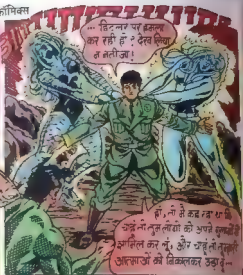 कॉमिक्स
... हिटलर पर हमला
कर रही हो ? देख लिया
न नतीजा !
हां, तो मैं कह रहा था कि
चाहूं तो तुम लोगों को अपने
शामिल कर लूं, और चाहूं तो तुम्हारी
आत्माओं को निकालकर उड़ा दूं...